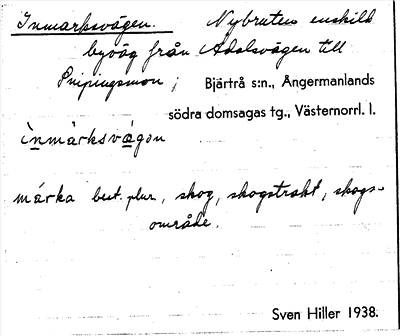 Inmarksvägen. Nybruten enskild
byväg från Ådalsvägen till
Snipingsmon; Bjärtrå s:n., Ångermanlands
södra domsagas tg., Västernorrl. l.
ìnmàrksvægɑn
márka best. plur, skog, skogstrakt, skogs-
område.
Sven Hiller 1938.